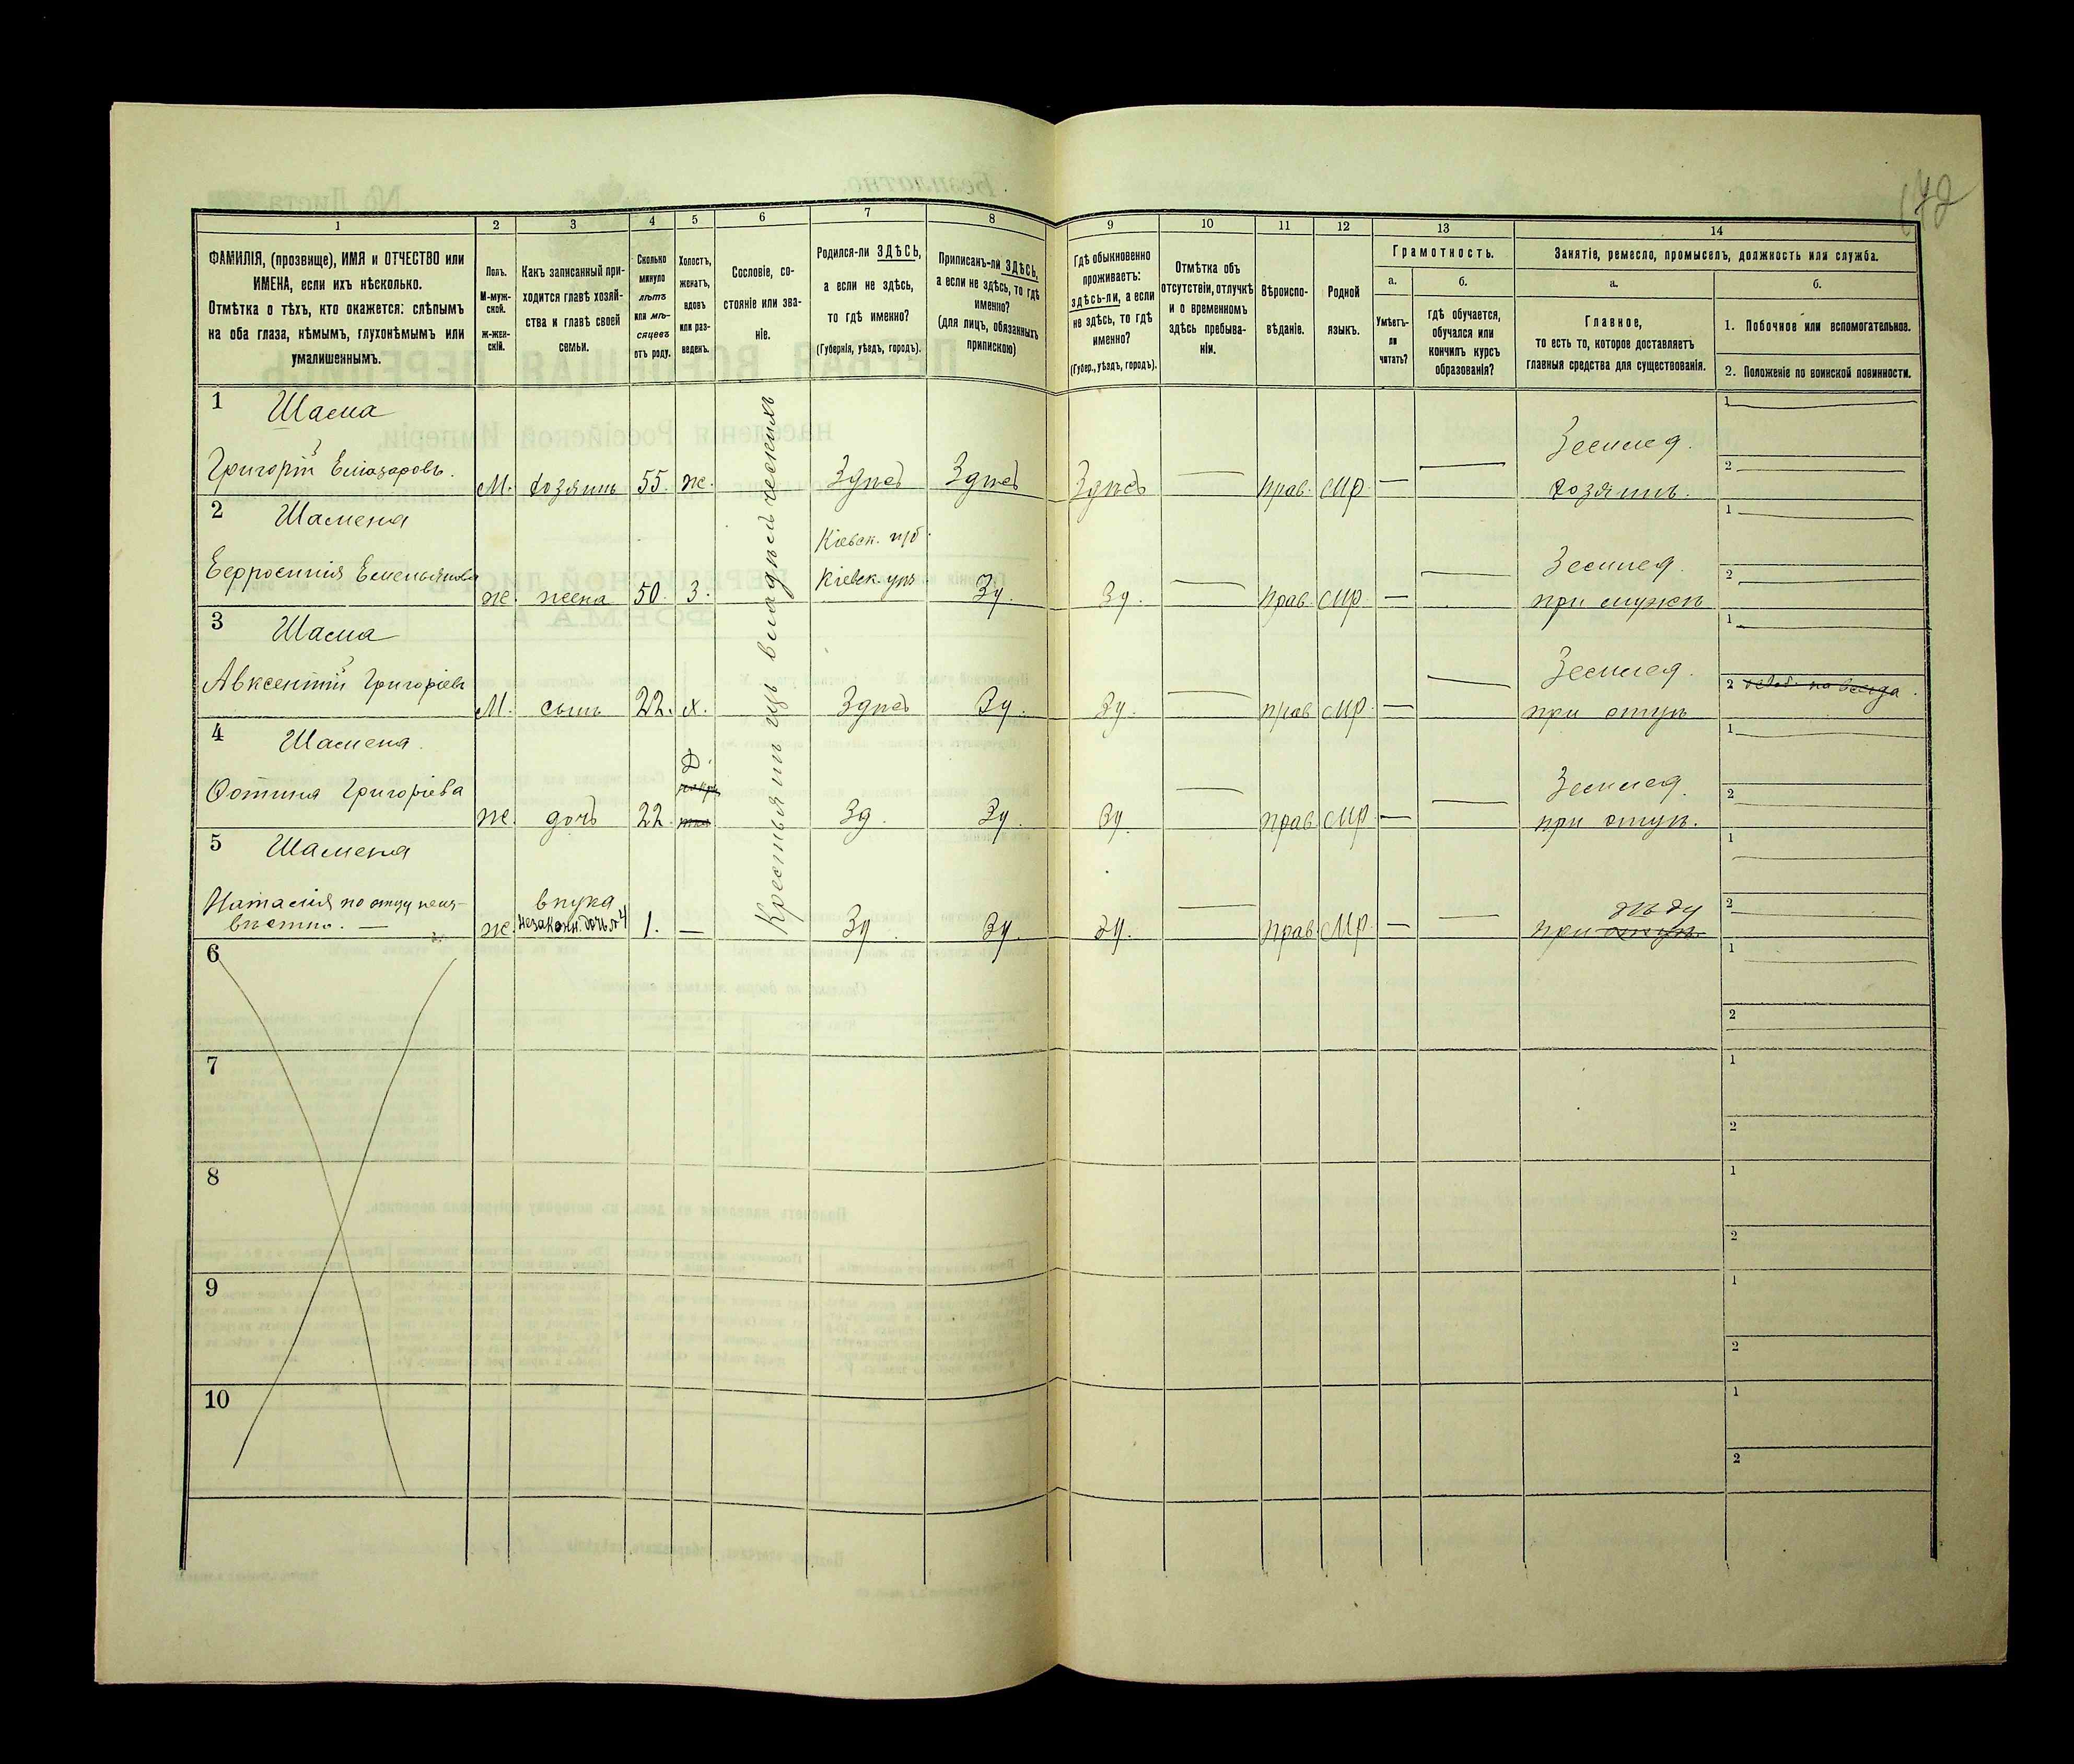 172
1
2
3
4
5
6
7
8
9
10
11
12
13
14
ФАМИЛІЯ, (прозвище), ИМЯ и ОТЧЕСТВО или
ИМЕНА, если ихъ нѣсколько.
Отмѣтка о тѣхъ, кто окажется: слѣпымъ
на оба глаза, нѣмымъ, глухонѣмымъ или
умалишеннымъ.
Полъ.
М-муж-
ской.
Ж-жен-
скій.
Какъ записанный при-
ходится главѣ хозяй-
ства и главѣ своей
семьи.
Сколько
минуло
лѣтъ
или мѣ-
сяцевъ
отъ роду.
Холостъ,
женатъ,
вдовъ
или раз-
веденъ.
Сословіе, со-
стояніе или зва-
ніе.
Родился-ли ЗДѢСЬ,
а если не здѣсь,
то гдѣ именно?
(Губернія, уѣздъ, городъ).
Приписанъ-ли ЗДѢСЬ,
а если не здѣсь, то гдѣ
именно?
(для лицъ, обязанныхъ
припискою)
Гдѣ обыкновенно
проживаетъ:
здѣсь-ли, а если
не здѣсь, то гдѣ
именно?
(Губер., уѣздъ, городъ).
Отмѣтка объ
отсутствіи, отлучкѣ
и о временномъ
здѣсь пребыва-
ніи.
Вѣроиспо-
вѣданіе.
Родной
языкъ.
Грамотность.
а.
Умѣетъ-
ли
читать?
б.
гдѣ обучается,
обучался или
кончилъ курсъ
образованія?
Занятіе, ремесло, промыселъ, должность или служба.
а.
Главное,
то есть то, которое доставляетъ
главныя средства для существованія.
б.
1. Побочное или вспомогательное.
2. Положеніе по воинской повинности.
Крестьянинъ владѣльческихъ
1 Шама 1
Григорій Елиазаровъ. М. хозяинъ 55. ж. Здѣсь Здѣсь Здѣсь — прав. мр — — Землед. 2
хозяинъ.
2 Шамена Кіевск. губ. 1
Евфросинія Емельянова ж. жена 50. 3. Кіевск. у. Зд. Зд. — прав. мр — — Землед. 2
при мужѣ
3 Шама 1
Авксентій Григоріевъ М. сынъ 22. х. Здѣсь Зд. Зд. — прав мр — — Землед. 2
при отцѣ
4 Шамена Д. 1
Фотина Григоріева ж. дочь 22. Зд. Зд. Зд. — прав мр — — Землед. 2
при отцѣ.
5 Шамена 1
Наталія по отцу неиз- внука
вѣстно. — ж. незакон. дочь №4 1. — Зд. Зд. Зд. — прав. мр — — при дѣду 2
6 1
2
7 1
2
8 1
2
9 1
2
10 1
2